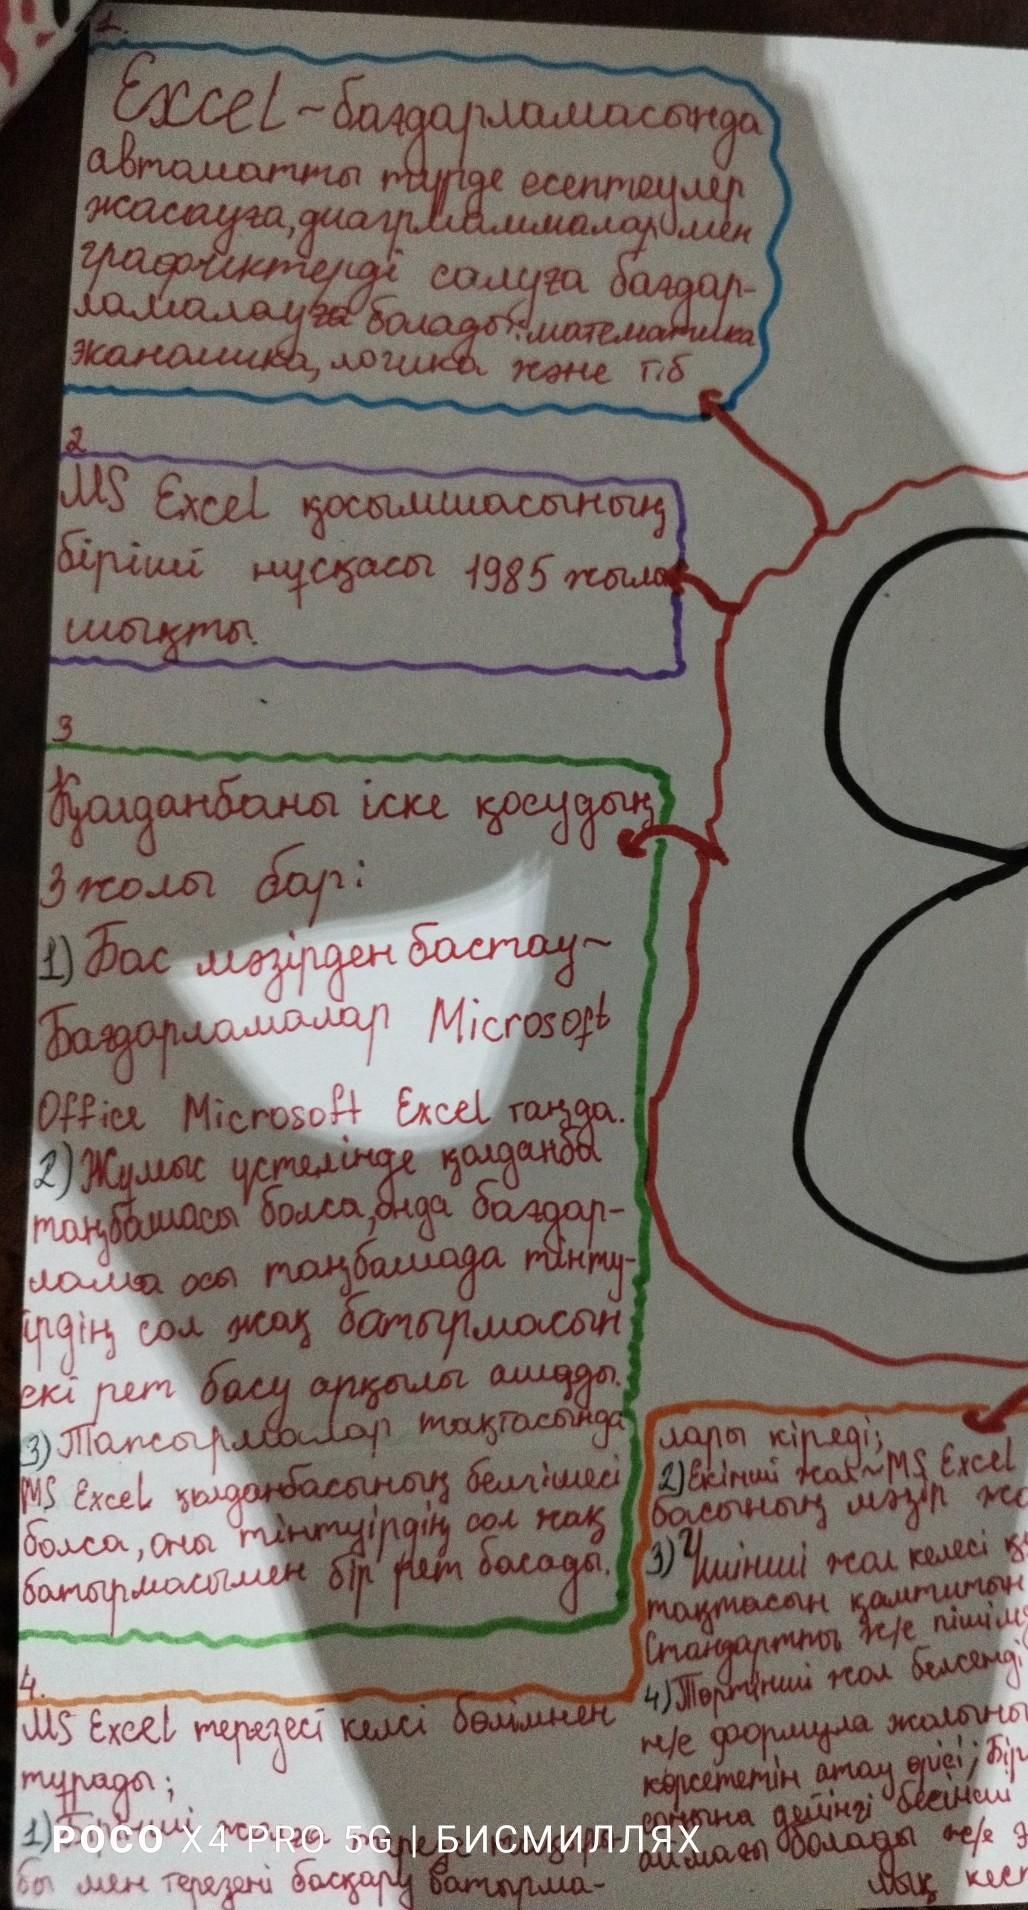 1.
Excel ~ бағдарламасында
автоматты түрде есептеулер
жасауға, диаграммалар мен
графиктерді салуға бағдар-
ламалауға болады: математика
экономика, логика және т.б
2
MS Excel қосымшасының
бірінші нұсқасы 1985 жылы
шықты.
3
Қолданбаны іске қосудың
3 жолы бар:
1) Бас мәзірден бастау ~
Бағдарламалар Microsoft
Office Microsoft Excel таңда.
2) Жұмыс үстелінде қолданба
таңбашасы болса, онда бағдар-
лама осы таңбашада тінту-
ірдің сол жақ батырмасын
екі рет басу арқылы ашады.
3) Тапсырмалар тақтасында
MS Excel қолданбасының белгішесі
болса, оны тінтуірдің сол жақ
батырмасымен бір рет басады.
4.
MS Excel терезесі келсі бөлімнен
тұрады;
1) Бірінші
бы мен терезені басқару батырма-
лары кіреді;
2) Екінші жол ~ MS Excel
басының мәзір
3) Үшінші жол келесі
тақтасын қамтитын
Стандартты ж/е
4) Төртінші жол
ж/е формула жолының
көрсететін атау өрісі;
соңына дейінгі бесінші
аймағы болады ж/е
лық
POCO X4 PRO 5G | БИСМИЛЛЯХ